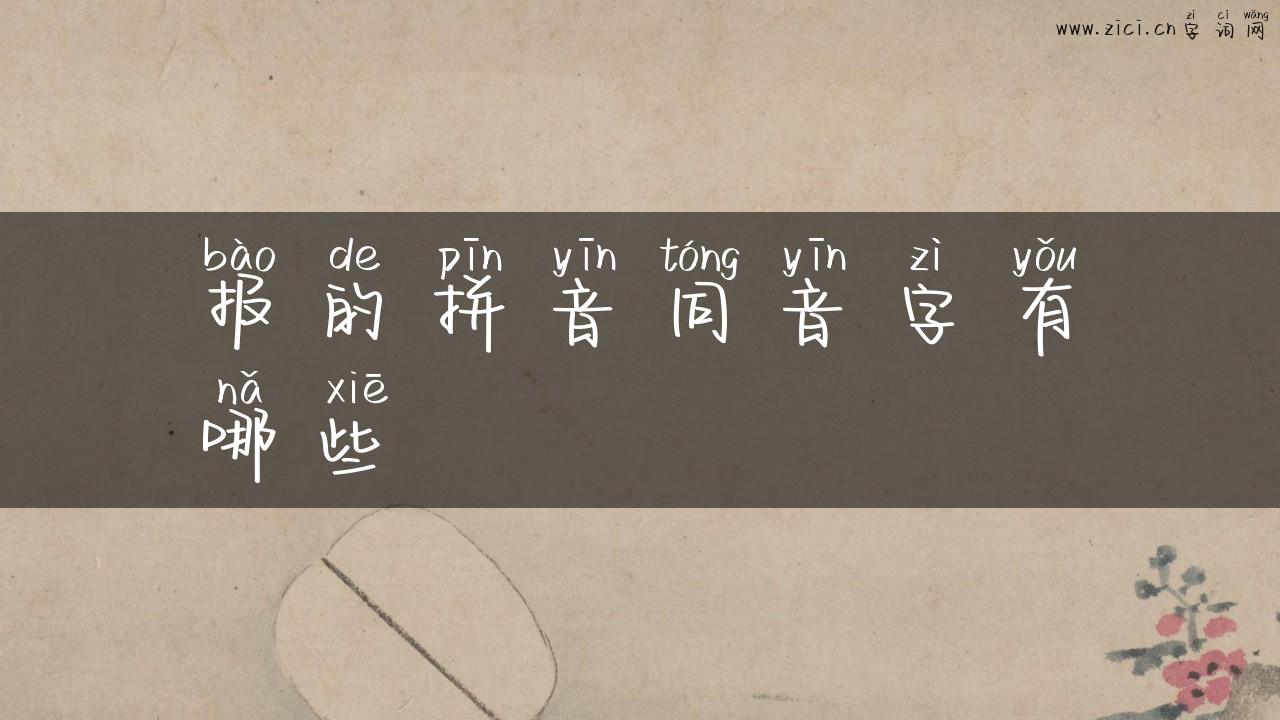 zì cí wǎng
www.zici.cn字词网
bào de pīn yīn tóng yīn zì yǒu
报的拼音同音字有
nǎ xiē
哪些